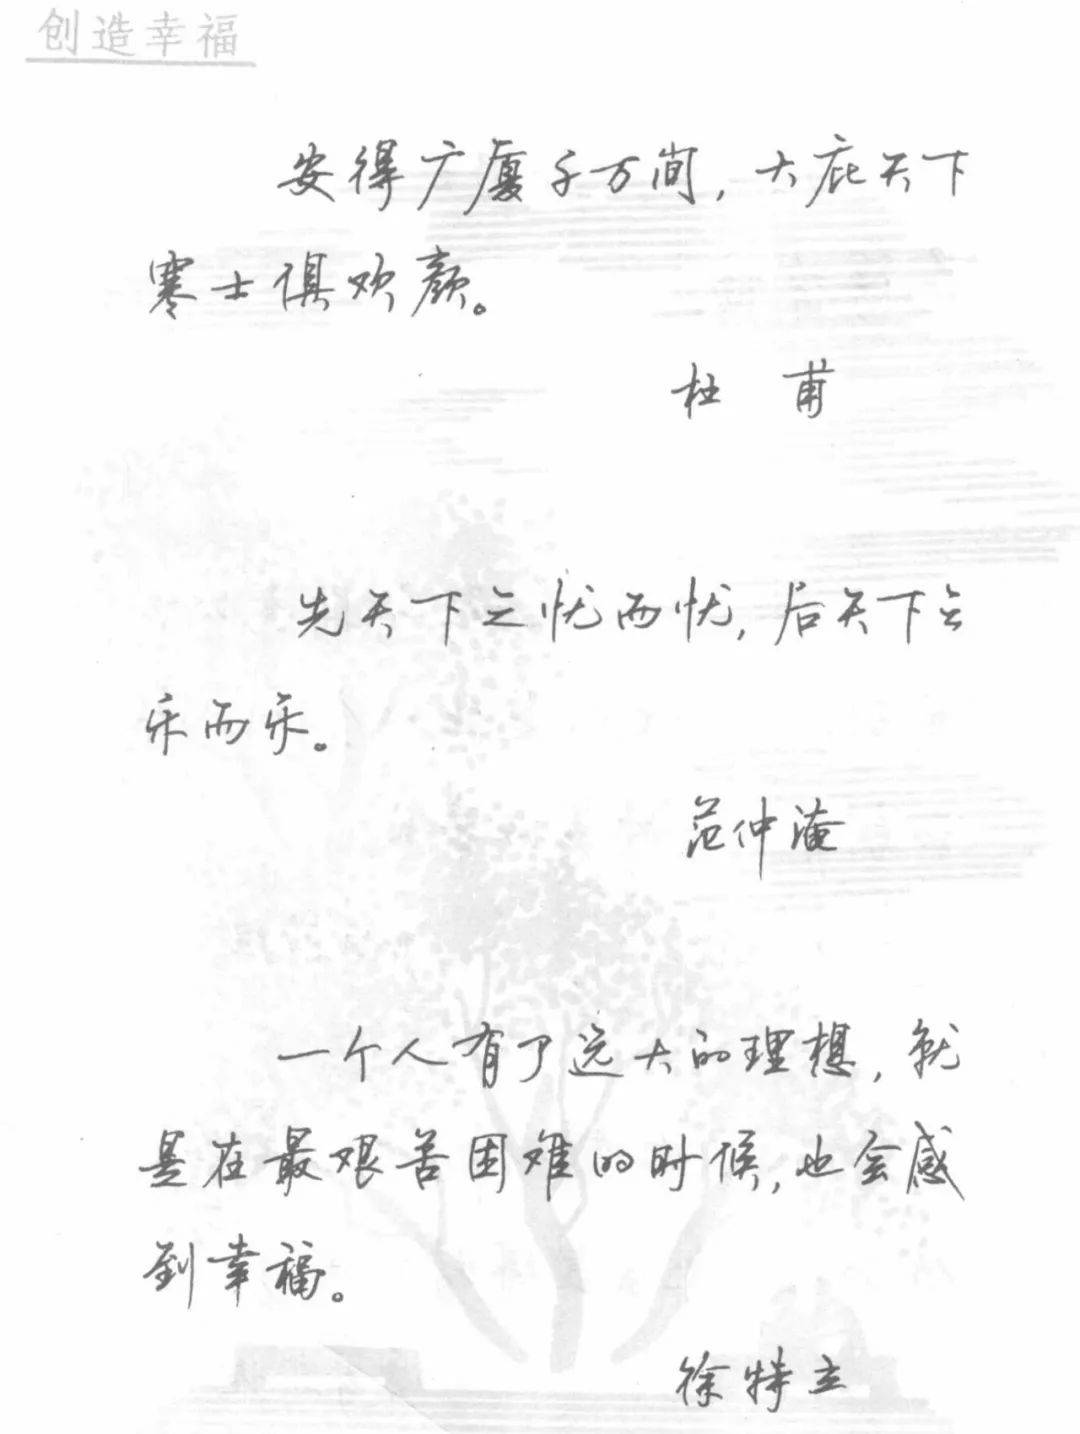 创造幸福
安得广厦千万间，大庇天下
寒士俱欢颜。
杜 甫
先天下之忧而忧，后天下之
乐而乐。
范仲淹
一个人有了远大的理想，就
是在最艰苦困难的时候，也会感
到幸福。
徐特立